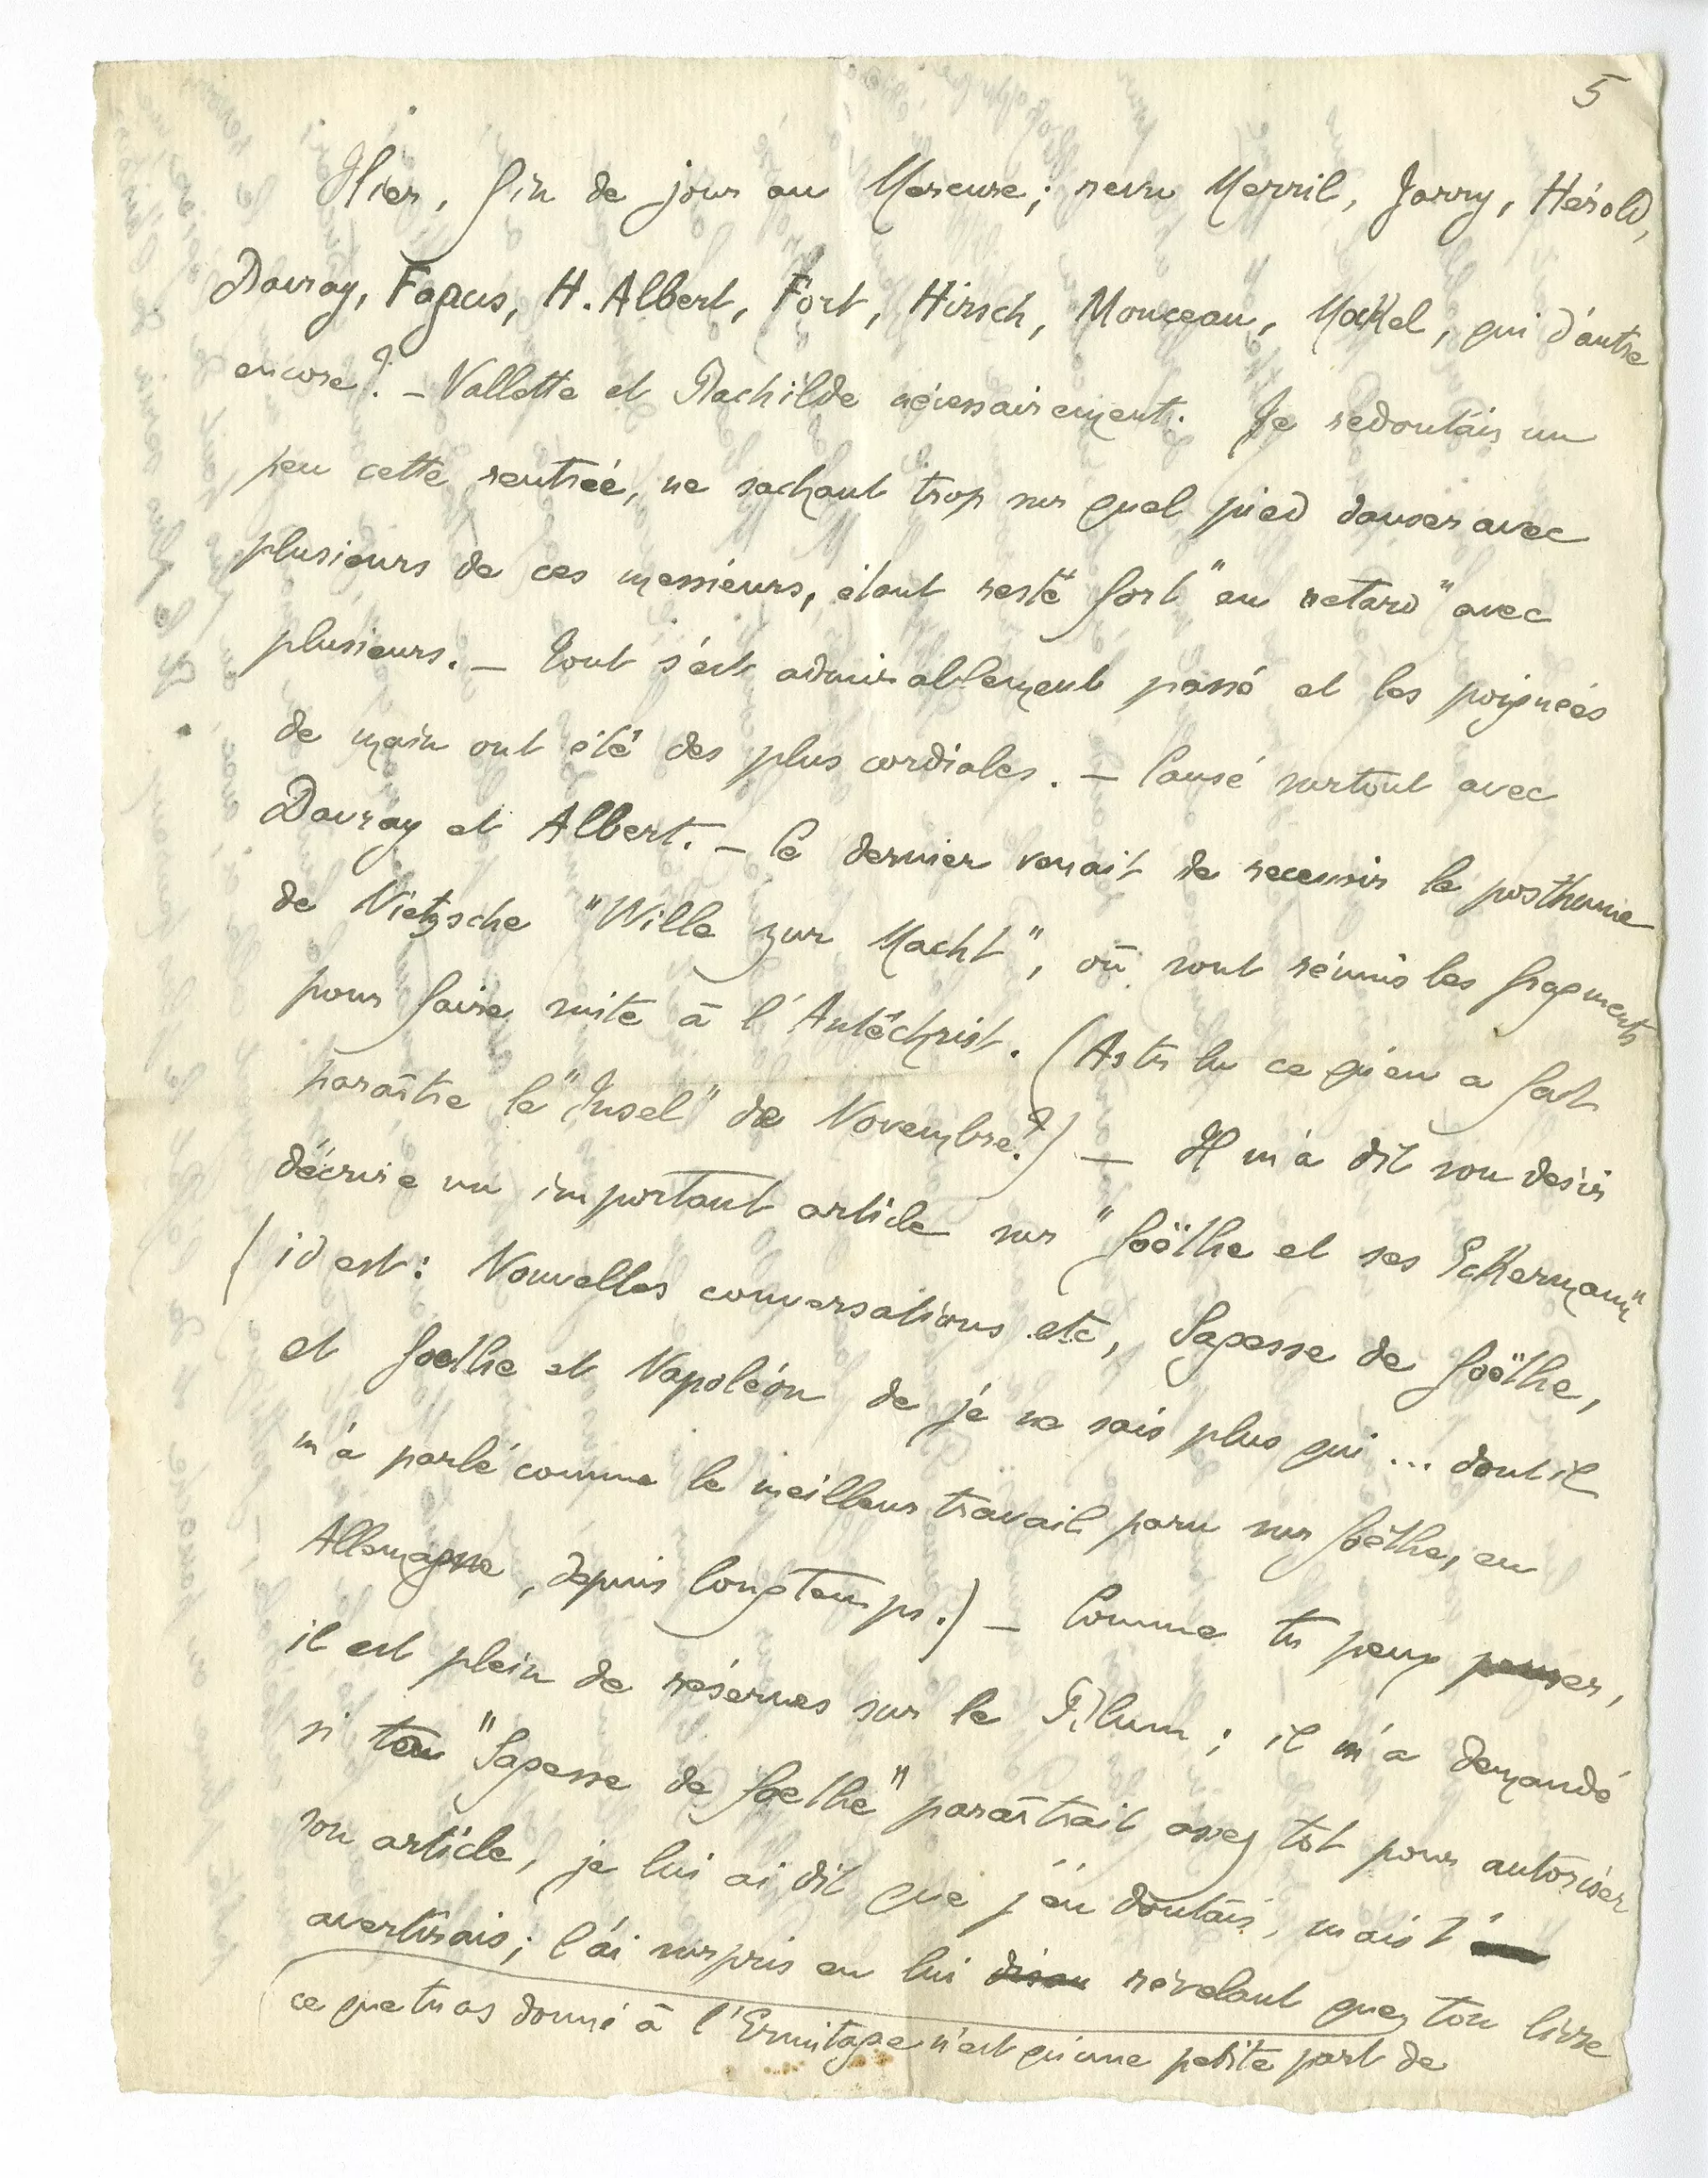 5
Hier, fin de jour au Mercure; revu Merril, Jarry, Hérold,
Davray, Fagus, H. Albert, Fort, Hirsch, Monceau, Mockel, qui d'autre
encore? – Vallette et Rachilde nécessairement. Je redoutais un
peu cette rentrée, ne sachant trop sur quel pied danser avec
plusieurs de ces messieurs, étant resté fort "en retard" avec
plusieurs. – Tout s'est admirablement passé et les poignées
de main ont été des plus cordiales. – Causé surtout avec
Davray et Albert. – Ce dernier venait de recevoir le posthume
de Nietzsche "Wille zur Macht", où sont réunis les fragments
pour faire suite à l'Antéchrist. (As tu lu ce qu'en a fait
paraître le "Insel" de Novembre?) – Il m'a dit son désir
d'écrire un important article sur "Goëthe et ses Eckermann"
(id est: Nouvelles conversations etc, Sagesse de Goëthe,
et Goethe et Napoléon de je ne sais plus qui ... dont il
m'a parlé comme le meilleur travail paru sur Goëthe, en
Allemagne, depuis longtemps.) – Comme tu peux penser,
il est plein de réserves sur le Blum; il m'a demandé
si ton "Sagesse de Goethe" paraîtrait assez tôt pour autoriser
son article, je lui ai dit que j'en doutais, mais t'
avertirais; l'ai surpris en lui révélant que ton livre
ce que tu as donné à l'Ermitage n'est qu'une petite part de